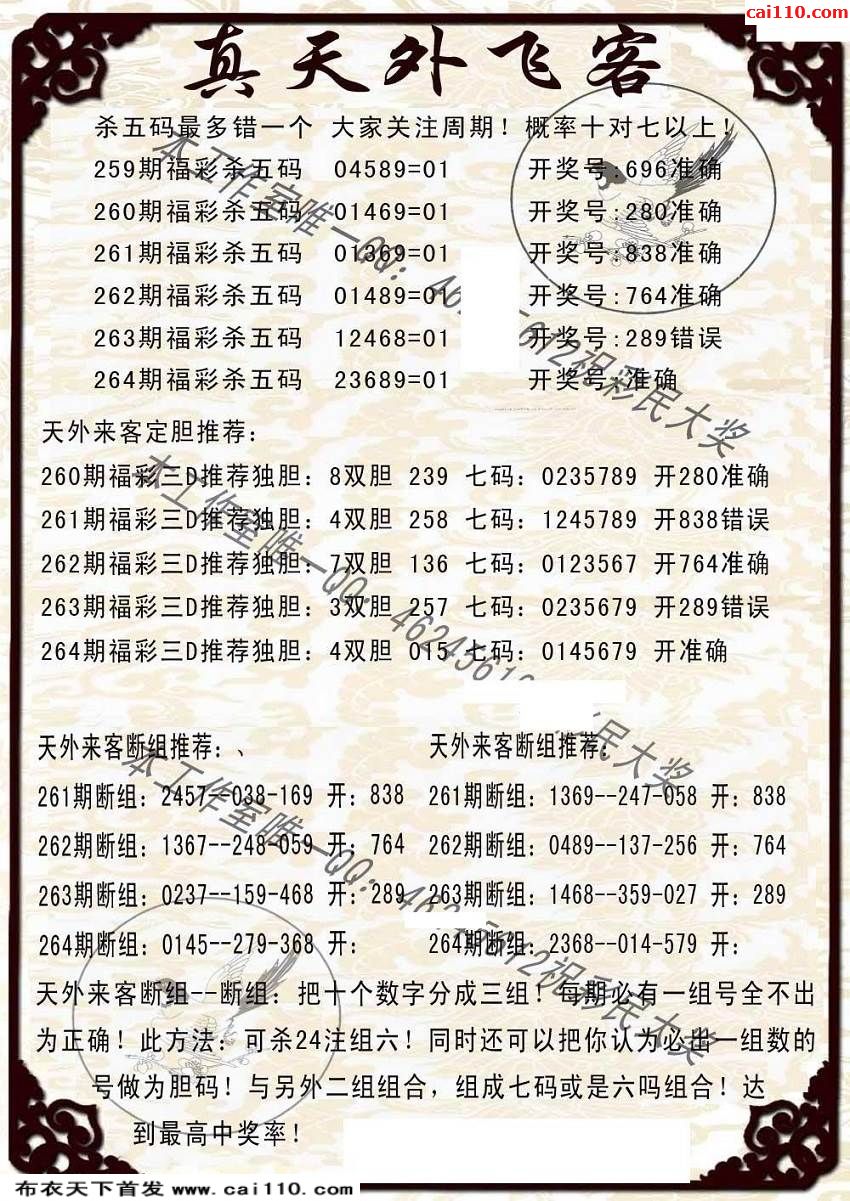 cai110.com
真天外飞客
杀五码最多错一个 大家关注周期！概率十对七以上！
259期福彩杀五码 04589=01 开奖号:696准确
260期福彩杀五码 01469=01 开奖号:280准确
261期福彩杀五码 01369=01 开奖号:838准确
262期福彩杀五码 01489=01 开奖号:764准确
263期福彩杀五码 12468=01 开奖号:289错误
264期福彩杀五码 23689=01 开奖号:准确
天外来客定胆推荐：
260期福彩三D推荐独胆：8双胆 239 七码：0235789 开280准确
261期福彩三D推荐独胆：4双胆 258 七码：1245789 开838错误
262期福彩三D推荐独胆：7双胆 136 七码：0123567 开764准确
263期福彩三D推荐独胆：3双胆 257 七码：0235679 开289错误
264期福彩三D推荐独胆：4双胆 015 七码：0145679 开准确
天外来客断组推荐：、 天外来客断组推荐：
261期断组：2457--038-169 开：838 261期断组：1369--247-058 开：838
262期断组：1367--248-059 开：764 262期断组：0489--137-256 开：764
263期断组：0237--159-468 开：289 263期断组：1468--359-027 开：289
264期断组：0145--279-368 开： 264期断组：2368--014-579 开：
天外来客断组--断组：把十个数字分成三组！每期必有一组号全不出
为正确！此方法：可杀24注组六！同时还可以把你认为必出一组数的
号做为胆码！与另外二组组合，组成七码或是六吗组合！达
到最高中奖率！
本工作室唯一QQ：46 5612祝彩民大奖
本工作室唯一QQ：4624561 民大奖
本工作室唯一QQ：462 5612祝彩民大奖
布衣天下首发 www.cai110.com